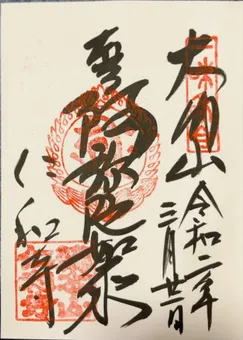 大内山
令和二年
三月廿二日
阿弥陀如来
仁和寺